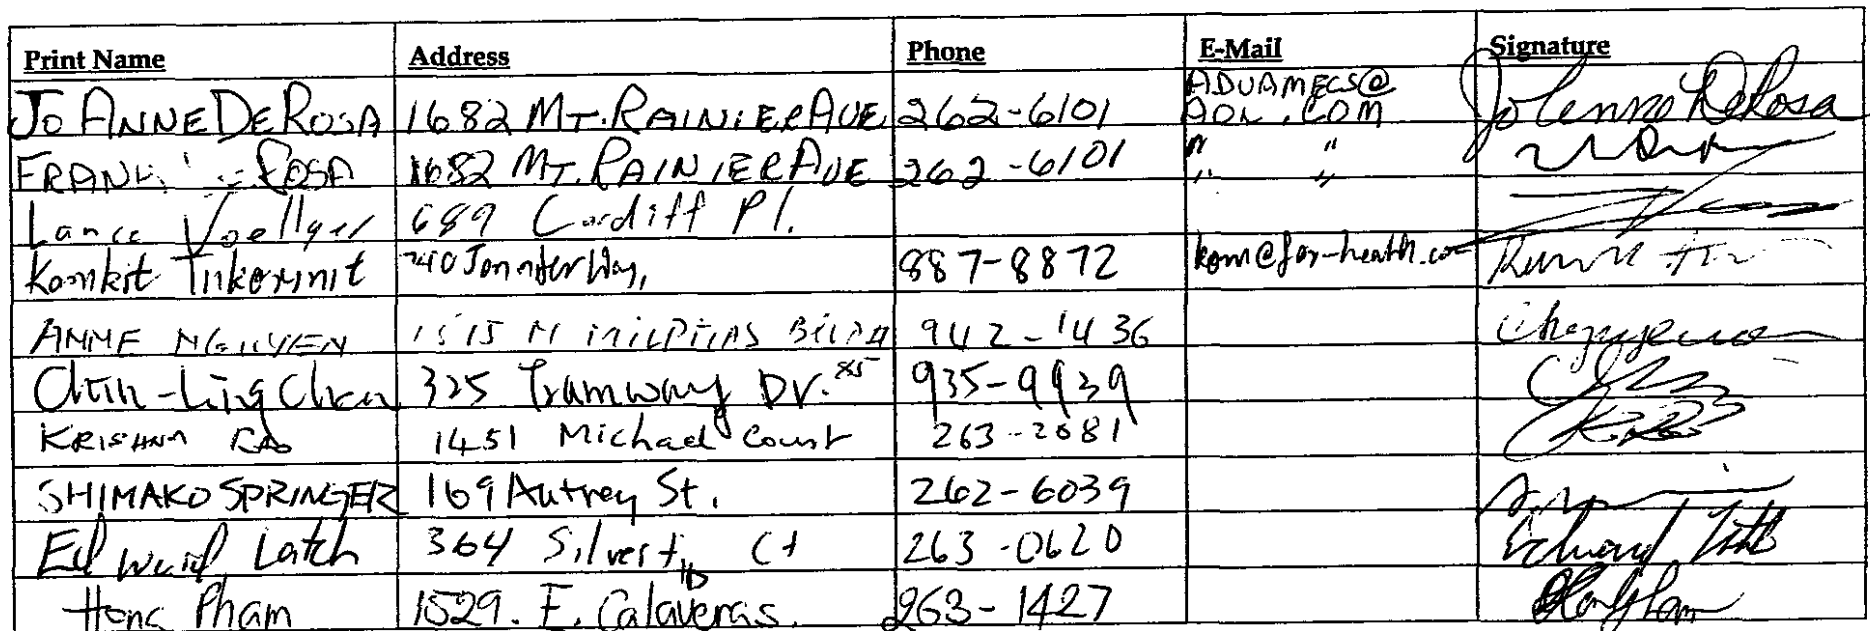 Print Name Address Phone E-Mail Signature
JO ANNE DEROSA 1682 MT. RAINIER AVE 262-6101 ADVAMECS@ AOL.COM JoAnne DeRosa
FRANK ROSA 1682 MT. RAINIER AVE 262-6101 " "
" "
Lance Voellger 689 Cardiff Pl.
Komkit Tinkorinit 740 Jennifer Way, 887-8872
ANNE NGUYEN 1515 N MILPITAS BLVD 942-1436
Chin-Ling Chen 325 Tramway Dr. #85 935-9939
KRISHNA RAO 1451 Michael Court 263-2681
SHIMAKO SPRINGER 169 Autrey St. 262-6039
Edward Latch 364 Silvest Ct 263-0620 Edward
Hong Pham 1529. E. Calaveras. 263-1427